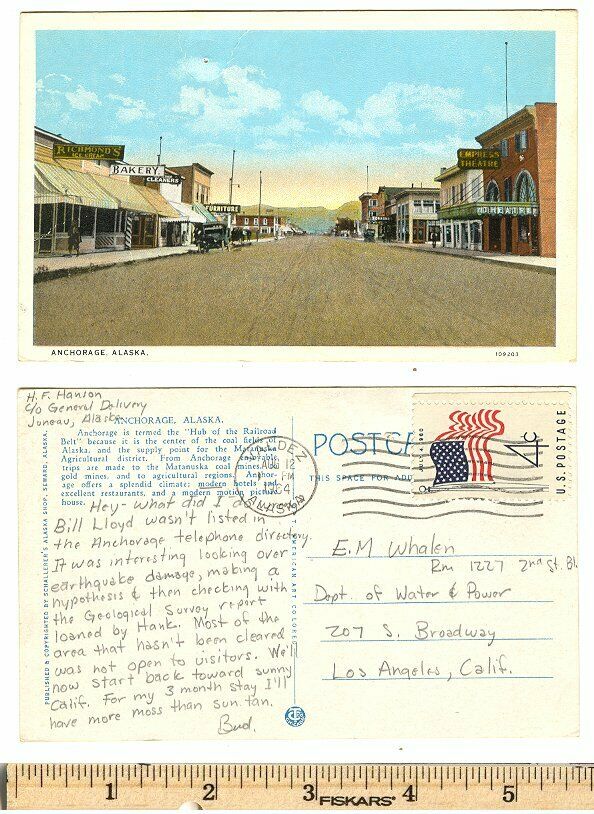 RICHMOND'S
ICE CREAM
BAKERY
CLEANERS
FURNITURE
EMPRESS
THEATRE
THEATRE
ANCHORAGE, ALASKA.
109203
H. F. Hanson
c/o General Delivery
Juneau, Alaska
ANCHORAGE, ALASKA.
Anchorage is termed the "Hub of the Railroad
Belt" because it is the center of the coal fields of
Alaska, and the supply point for the Matanuska
Agricultural district. From Anchorage enjoyable
trips are made to the Matanuska coal mines,
gold mines, and to agricultural regions. Anchor-
age offers a splendid climate; modern hotels and
excellent restaurants, and a modern motion picture
house.
Hey- what did I do
Bill Lloyd wasn't listed in
the Anchorage telephone directory.
It was interesting looking over
earthquake damage, making a
hypothesis & then checking with
the Geological Survey report
loaned by Hank. Most of the
area that hasn't been cleared
was not open to visitors. We'll
now start back toward sunny
Calif. For my 3 month stay I'll
have more moss than sun tan.
Bud.
PUBLISHED & COPYRIGHTED BY SCHALLERER'S ALASKA SHOP, SEWARD, ALASKA.
AMERICAN ART COLORED
POSTCA
THIS SPACE FOR ADD
VALDEZ
AUG 12
PM
1964
ALASKA
JULY 4 1960
4c
U.S. POSTAGE
E. M Whalen
Rm 1227 2nd St. Bl.
Dept. of Water & Power
207 S. Broadway
Los Angeles, Calif.
1 2 3 FISKARS 4 5